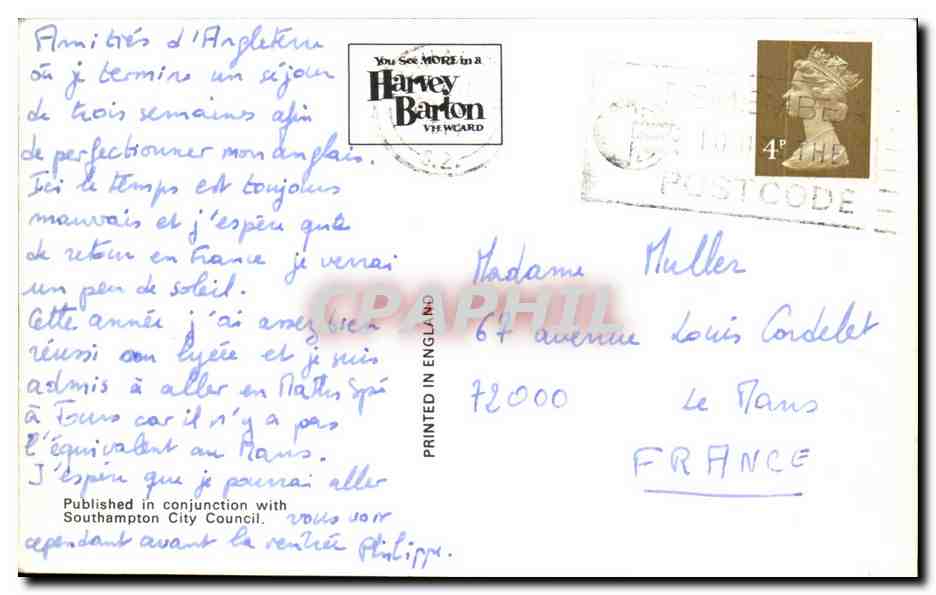 Amitiés d'Angleterre
où je termine un séjour
de trois semaines afin
de perfectionner mon anglais.
Ici le temps est toujours
mauvais et j'espère que
de retour en France je verrai
un peu de soleil.
Cette année j'ai assez bien
réussi au lycée et je suis
admis à aller en Maths Spé
à Tours car il n'y a pas
l'équivalent au Mans.
J'espère que je pourrai aller
Published in conjunction with
Southampton City Council.
vous voir
cependant avant la rentrée Philippe.
You See MORE in a
Harvey
Barton
VIEWCARD
PRINTED IN ENGLAND
CPAPHIL
4P
POSTCODE
Madame Muller
67 avenue Louis Cordelet
72000 Le Mans
FRANCE